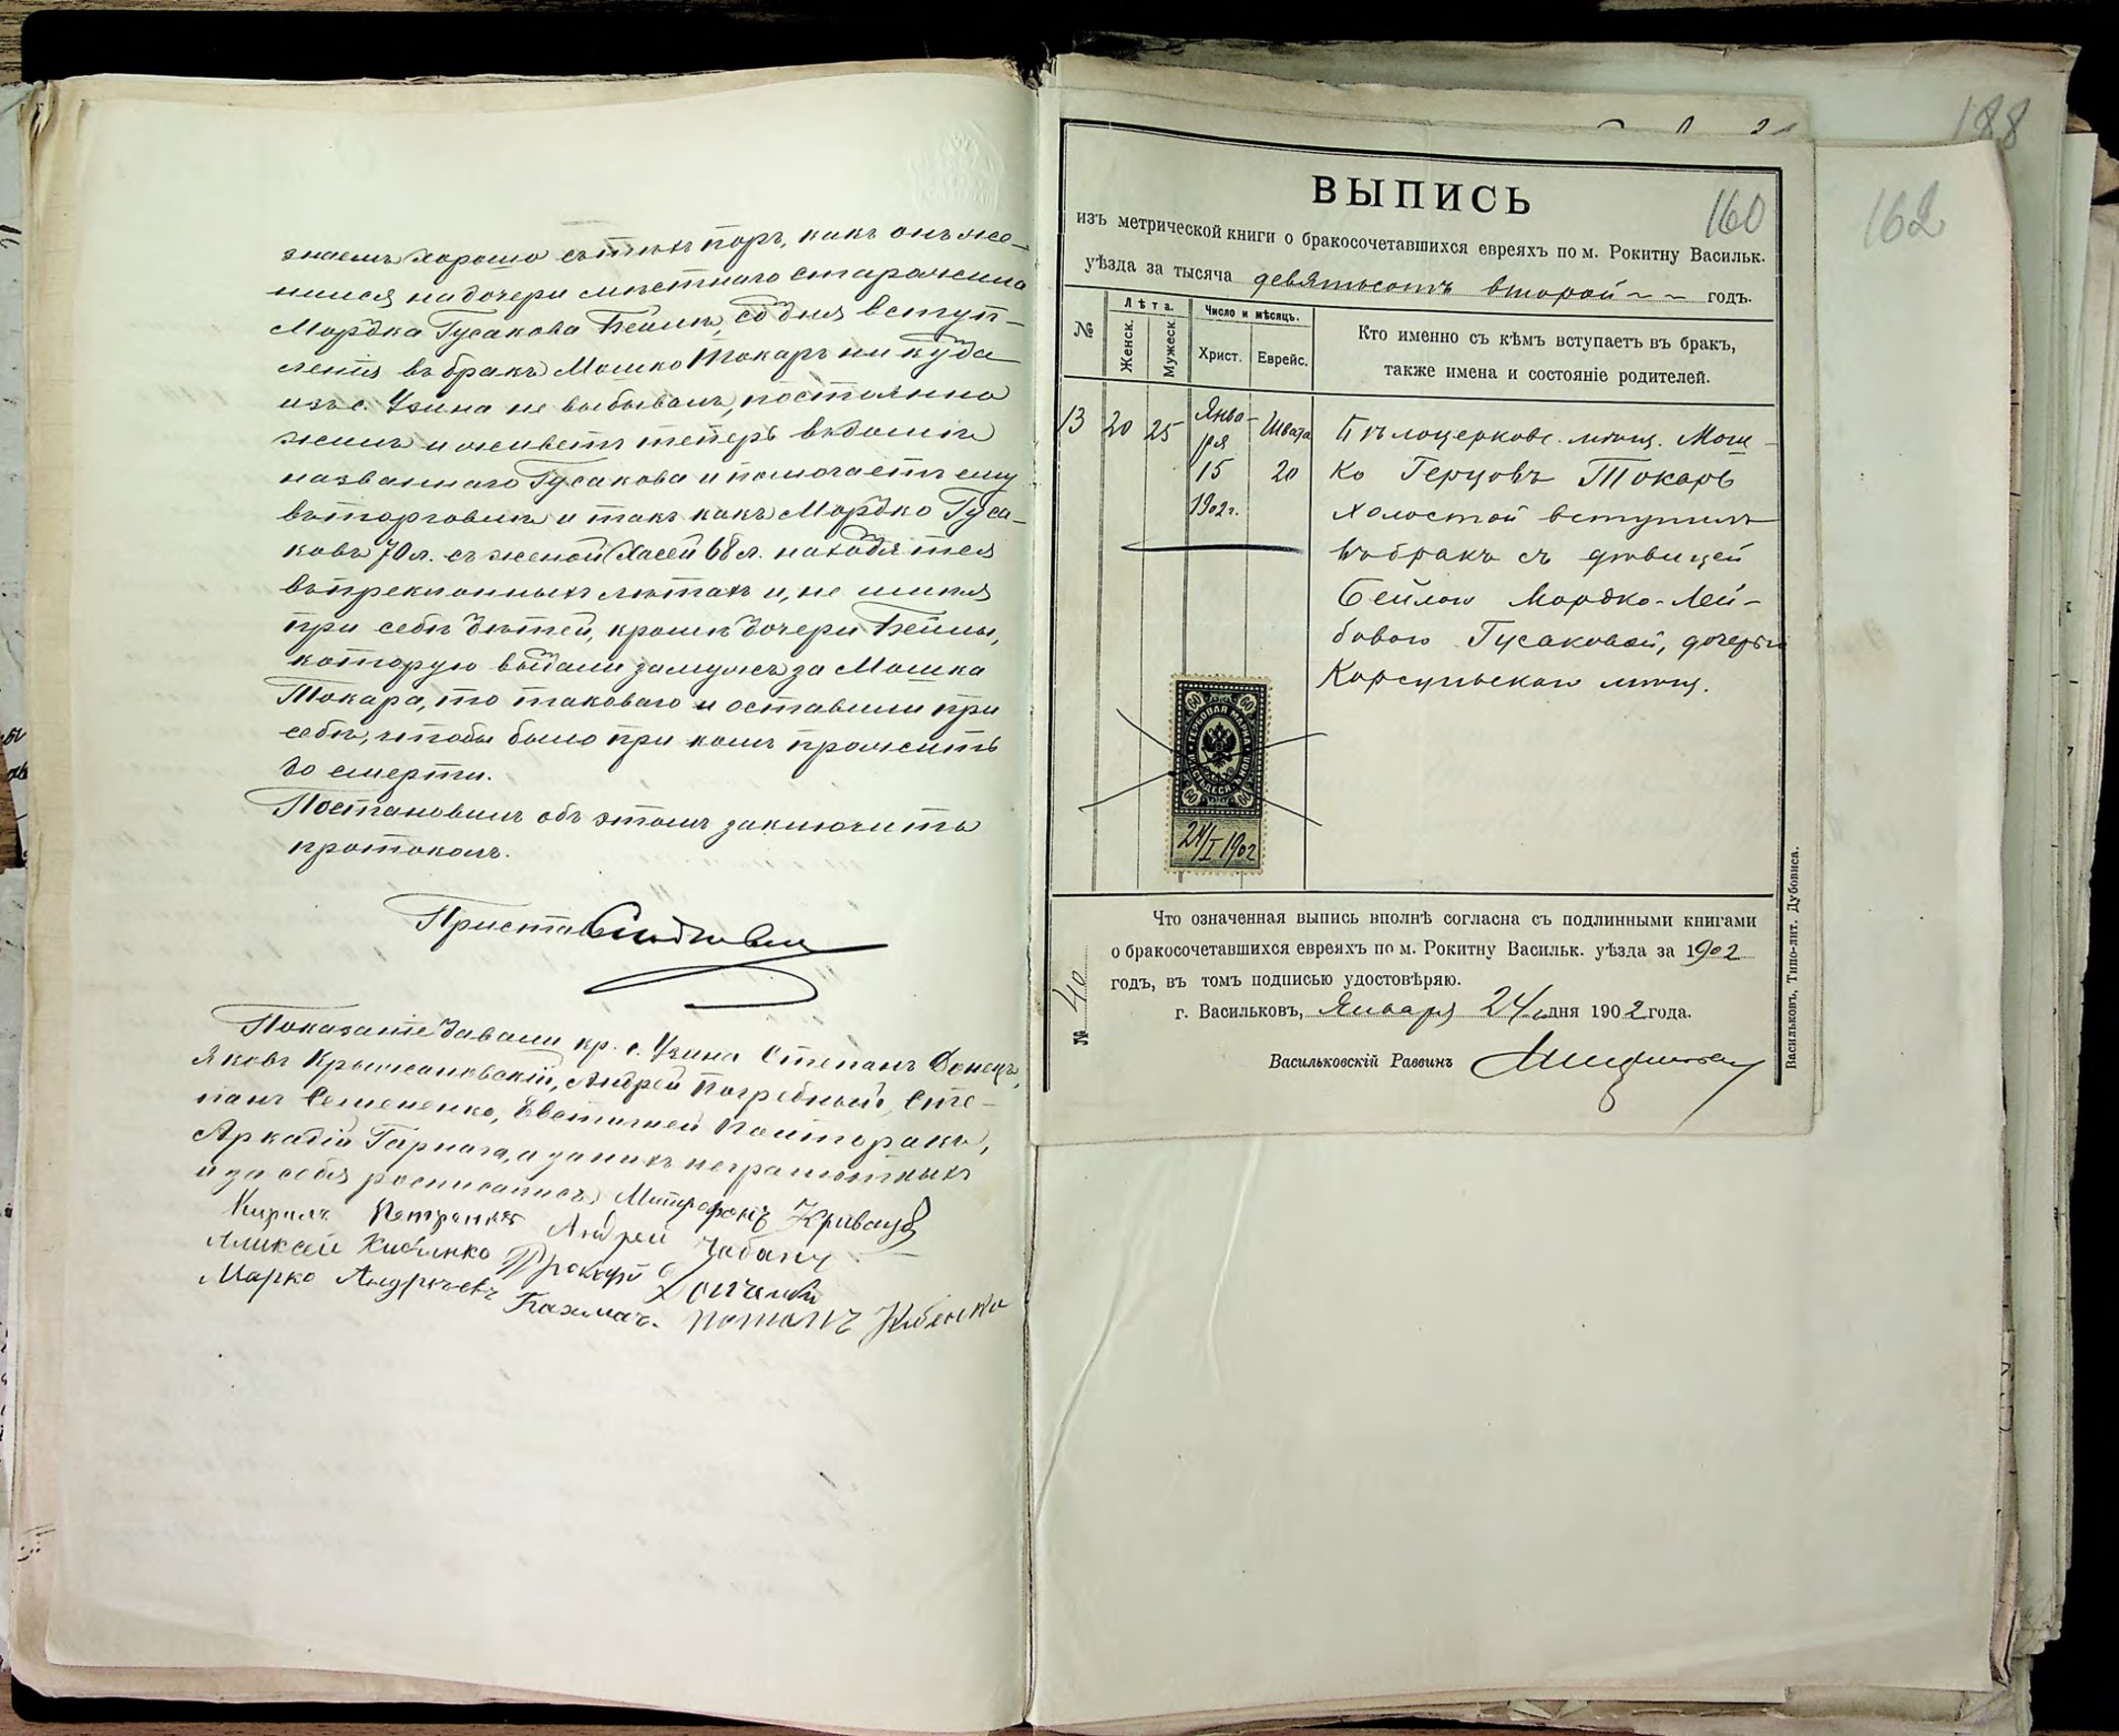 знаемъ хорошо съ тѣхъ поръ, какъ онъ же-
нился на дочери мѣстнаго старожила
Мордка Гусакова Бейлѣ, со дня вступ-
ленія въ бракъ Мошко Токарь ни куда
изъ с. Узина не выбывалъ, постоянно
жилъ и живетъ теперь въ домѣ
названнаго Гусакова и помогаетъ ему
въ торговлѣ и такъ какъ Мордко Гуса-
ковъ 70 л. съ женой Хаей 68 л. находятся
въ преклонныхъ лѣтахъ и, не имѣя
при себѣ дѣтей, кромѣ дочери Бейлы,
которую выдали замужъ за Мошка
Токаря, то таковаго и оставили при
себѣ, чтобы было при комъ прожить
до смерти.
Постановилъ объ этомъ заключить
протоколъ.
Приставъ
Показаніе давали кр. с. Узина Степанъ Донецъ,
Яковъ Крыжановскій, Андрей Погребный, Сте-
панъ Семененко, Евстигней Полторакъ,
Аркадій Гарнага, а за нихъ неграмотныхъ
и за себя росписались Митрофанъ Кривецъ
Кирилъ Андрей Чабанъ
Аликсей Прокофій
Марко Андрѣевъ потапъ
188
162
160
ВЫПИСЬ
изъ метрической книги о бракосочетавшихся евреяхъ по м. Рокитну Васильк.
уѣзда за тысяча девятьсотъ второй ~ ~ годъ.
№
Лѣта.
Женск.
Мужеск.
Число и мѣсяцъ.
Христ.
Еврейс.
Кто именно съ кѣмъ вступаетъ въ бракъ,
также имена и состояніе родителей.
13 20 25 Янва- Швата Бѣлоцерковс. мѣщ. Мош-
ря
15 20 ко Герцовъ Токарь
1902 г. холостой вступилъ
въ бракъ съ дѣвицей
Бейлою Мордко-Лей-
бовою Гусаковой, дочерью
Корсуньскаго мѣщ.
60 60
ГЕРБОВАЯ МАРКА
ШЕСТЬДЕСЯТЪ КОП.
60 60
24/I 1902
Что означенная выпись вполнѣ согласна съ подлинными книгами
о бракосочетавшихся евреяхъ по м. Рокитну Васильк. уѣзда за 1902
годъ, въ томъ подписью удостовѣряю.
№ 40
г. Васильковъ, Января 24 дня 1902 года.
Васильковскій Раввинъ
Васильковъ, Типо-лит. Дубовиса.